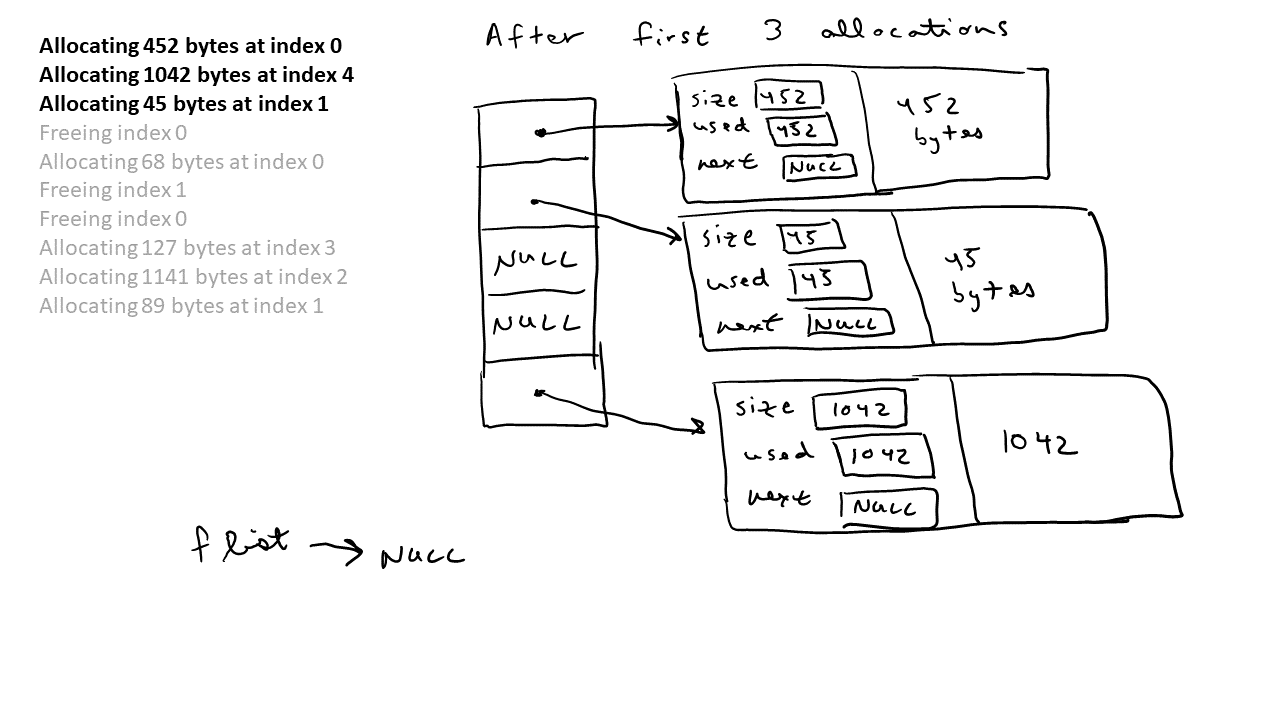 Allocating 452 bytes at index 0
Allocating 1042 bytes at index 4
Allocating 45 bytes at index 1
Freeing index 0
Allocating 68 bytes at index 0
Freeing index 1
Freeing index 0
Allocating 127 bytes at index 3
Allocating 1141 bytes at index 2
Allocating 89 bytes at index 1
After first 3 allocations
size 452
used 452
next NULL
452
bytes
size 45
used 45
next NULL
45
bytes
NULL
NULL
size 1042
used 1042
next NULL
1042
flist → NULL